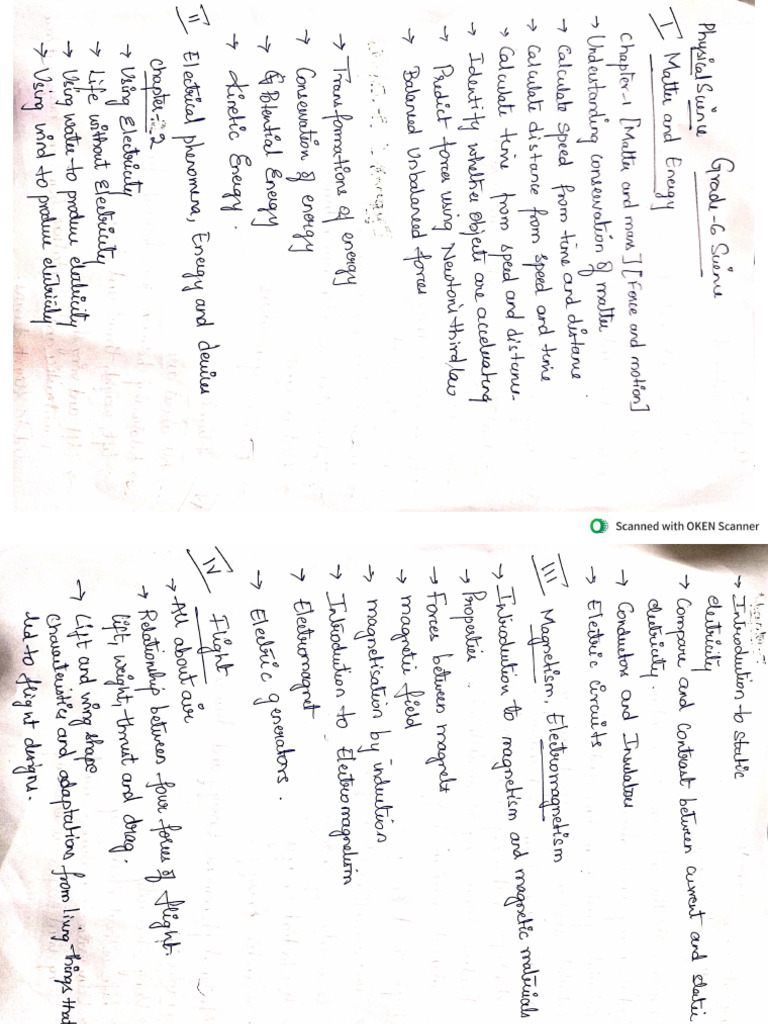 Grade-6 Science
Physical Science
I Matter and Energy
Chapter-1 [Matter and mass] [Force and motion]
→ Understanding conservation of matter
→ Calculate speed from time and distance
→ Calculate distance from speed and time
→ Calculate time from speed and distance.
→ Identify whether objects are accelerating
→ Predict forces using Newton's third law
→ Balanced Unbalanced forces
→ Transformations of energy
→ Conservation of energy
→ Potential Energy
→ Kinetic Energy.
II Electrical phenomena, Energy and devices
Chapter-2
→ Using Electricity
→ Life without Electricity
→ Using water to produce electricity
→ Using wind to produce electricity
Scanned with OKEN Scanner
→ Introduction to static
electricity
→ Compare and contrast between current and static
electricity.
→ Conductors and Insulators
→ Electric circuits
III Magnetism, Electromagnetism
→ Introduction to magnetism and magnetic materials
→ Properties.
→ Forces between magnets
→ magnetic field
→ magnetisation by induction
→ Introduction to Electromagnetism
→ Electromagnet
→ Electric generators.
IV Flight
→ All about air
→ Relationship between four forces of flight.
lift, weight, thrust and drag.
→ Lift and wing shape
Characteristics and adaptations from living-things that
led to flight designs.